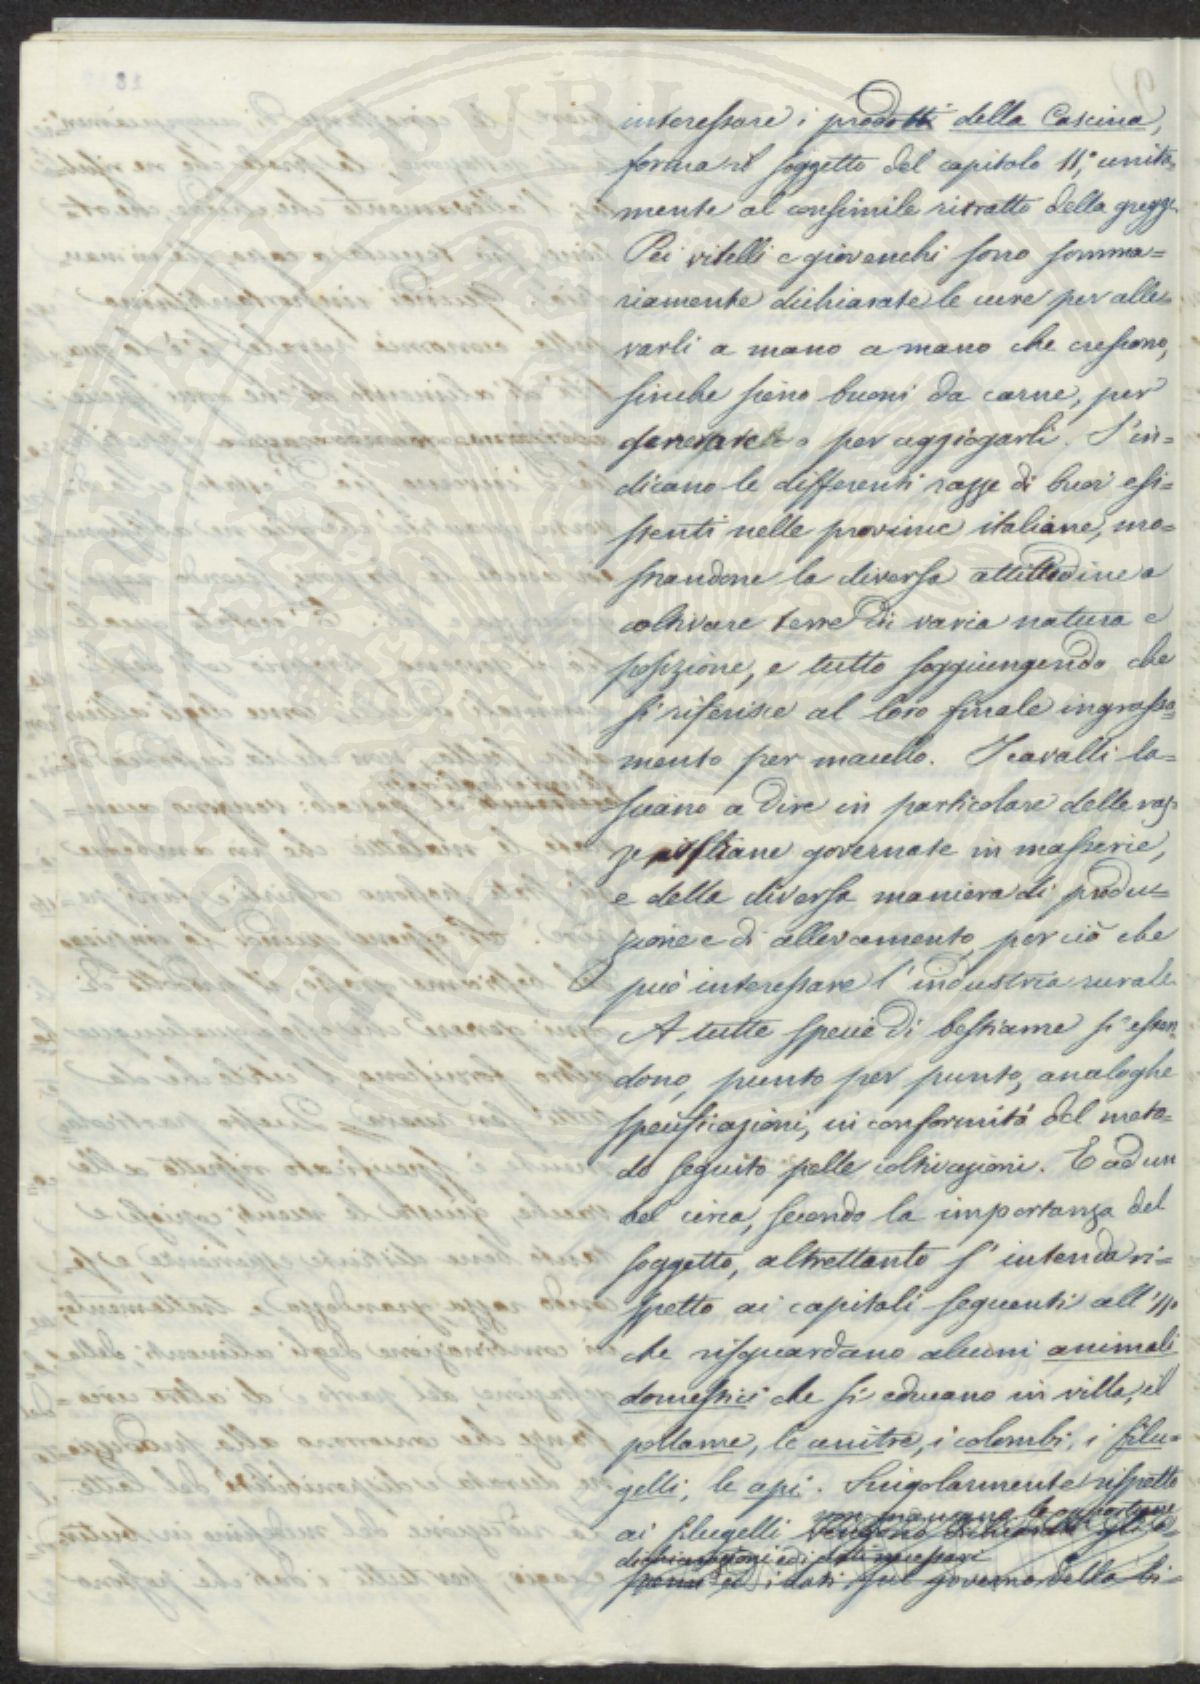 interessare i prodotti della Cascina,
forma il soggetto del capitolo 11°, unita-
mente al consimile ritratto della gregge.
Pei vitelli e giovenchi sono somma=
riamente dichiarate le cure per alle-
varli a mano a mano che crescono,
finche sieno buoni da carne, per
o per aggiogarli. S'in=
dicano le differenti razze di buoi esi=
stenti nelle provincie italiane, mo=
strandone la diversa attitudine a
coltivare terre di varia natura e
posizione, e tutto soggiungendo che
si riferisce al loro finale ingrassa=
mento per macello. I cavalli la=
sciano a dire in particolare delle raz=
ze governate in masserie,
e della diversa maniera di produ=
zione e di allevamento, per ciò che
può interessare l'industria rurale.
A tutte specie di bestiame si esten
dono, punto per punto, analoghe
specificazioni, in conformità del meto=
do seguito pelle coltivazioni. E ad un
bel circa, secondo la importanza del
soggetto, altrettanto s'intenda ri=
spetto ai capitoli seguenti all'11°
che risguardano alcuni animali
domestici che si educano in villa, il
pollame, le anitre, i colombi, i filu=
gelli, le api. Singolarmente rispetto
non mancano le opportune
ai filugelli
dichiarazioni ed i dati necessari
ed i dati sul governo della bi=